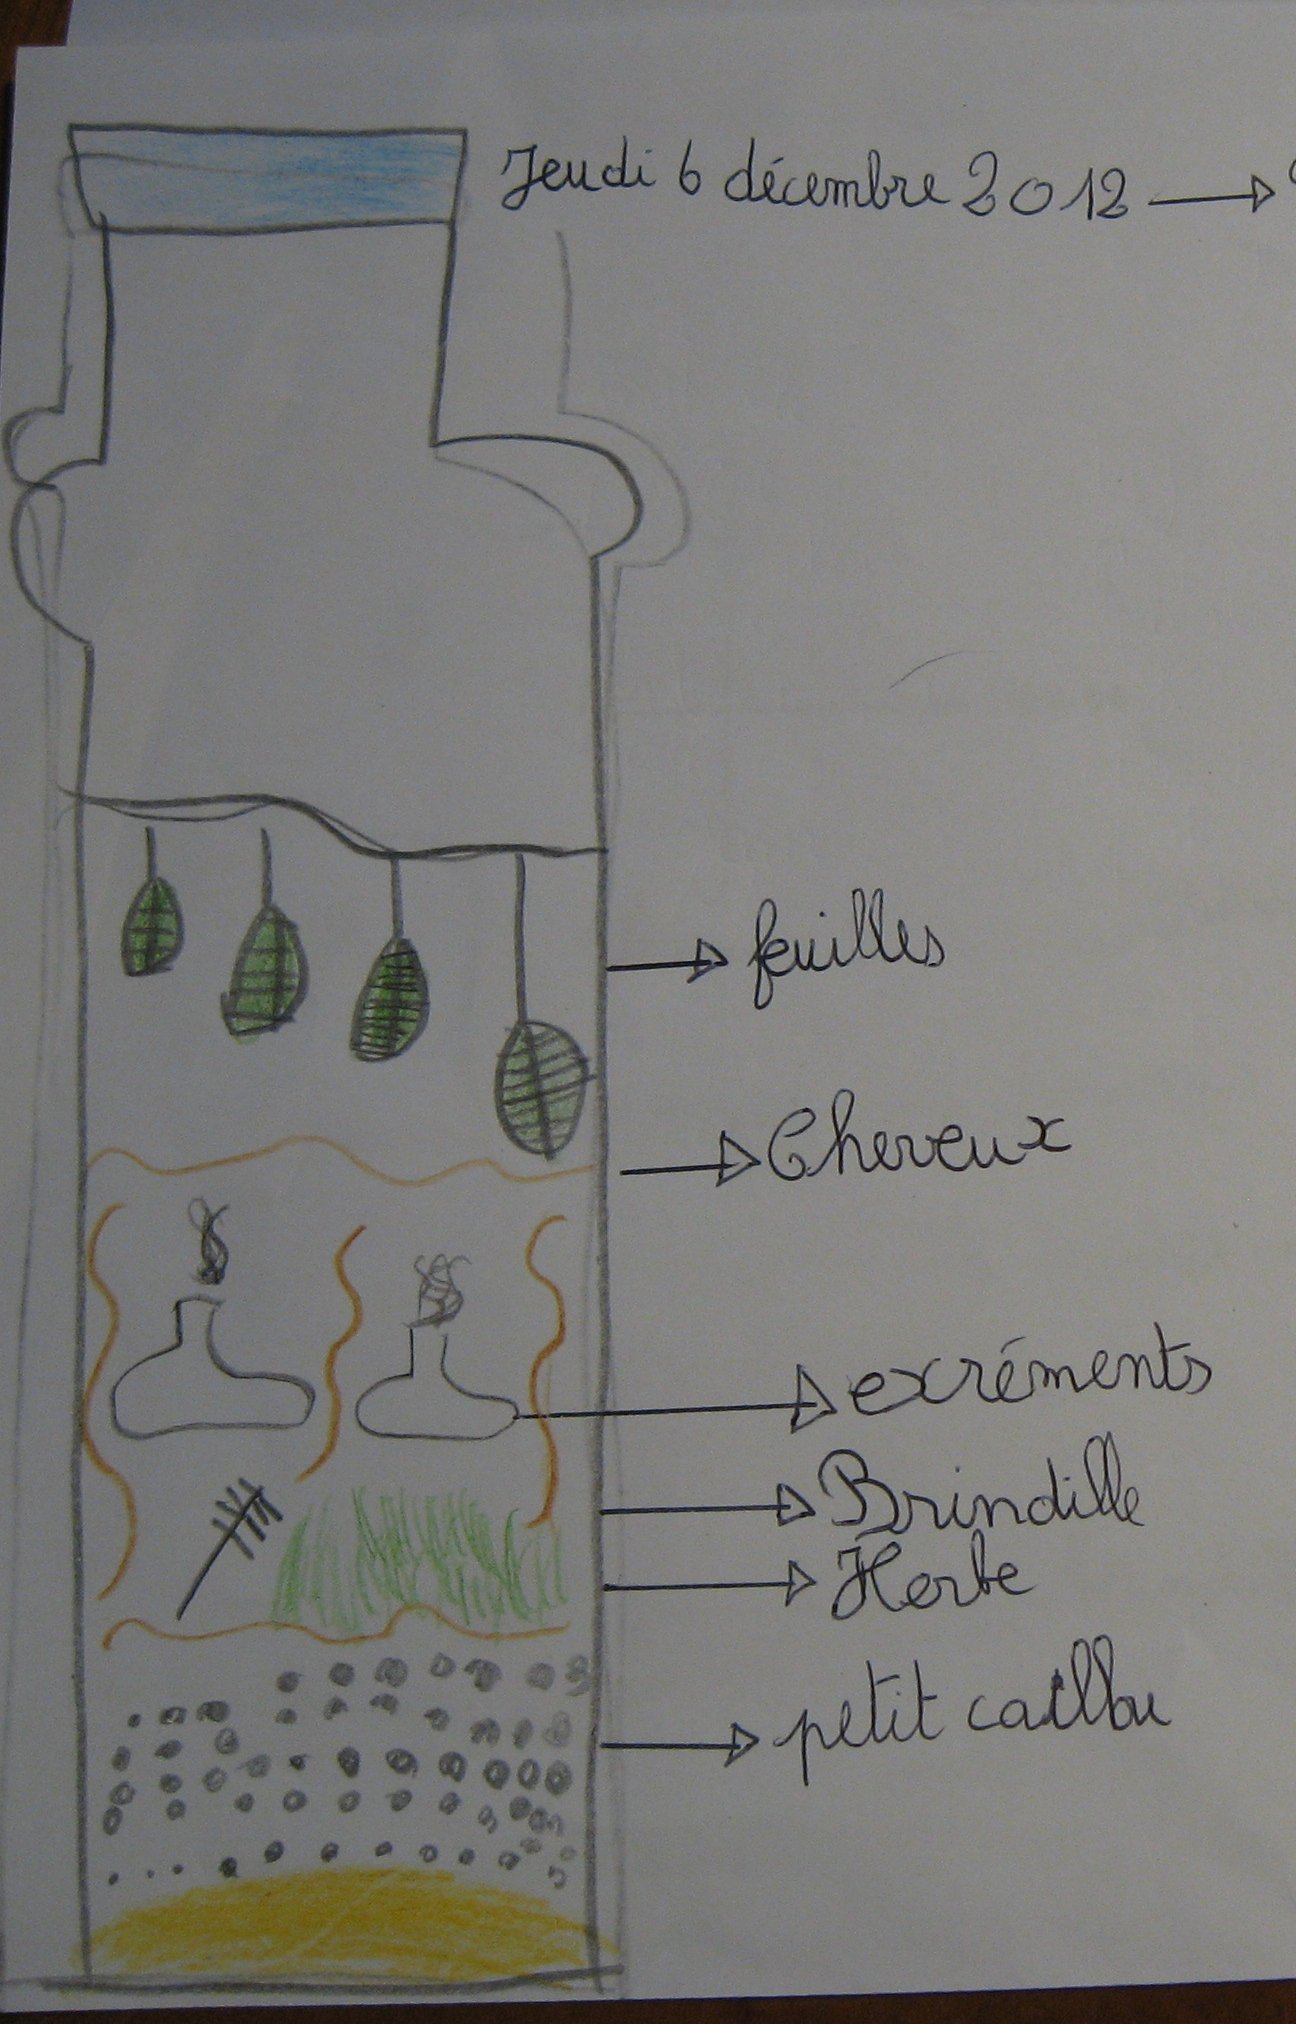 Jeudi 6 décembre 2012
feuilles
Cheveux
exréments
Brindille
Herbe
petit caillou